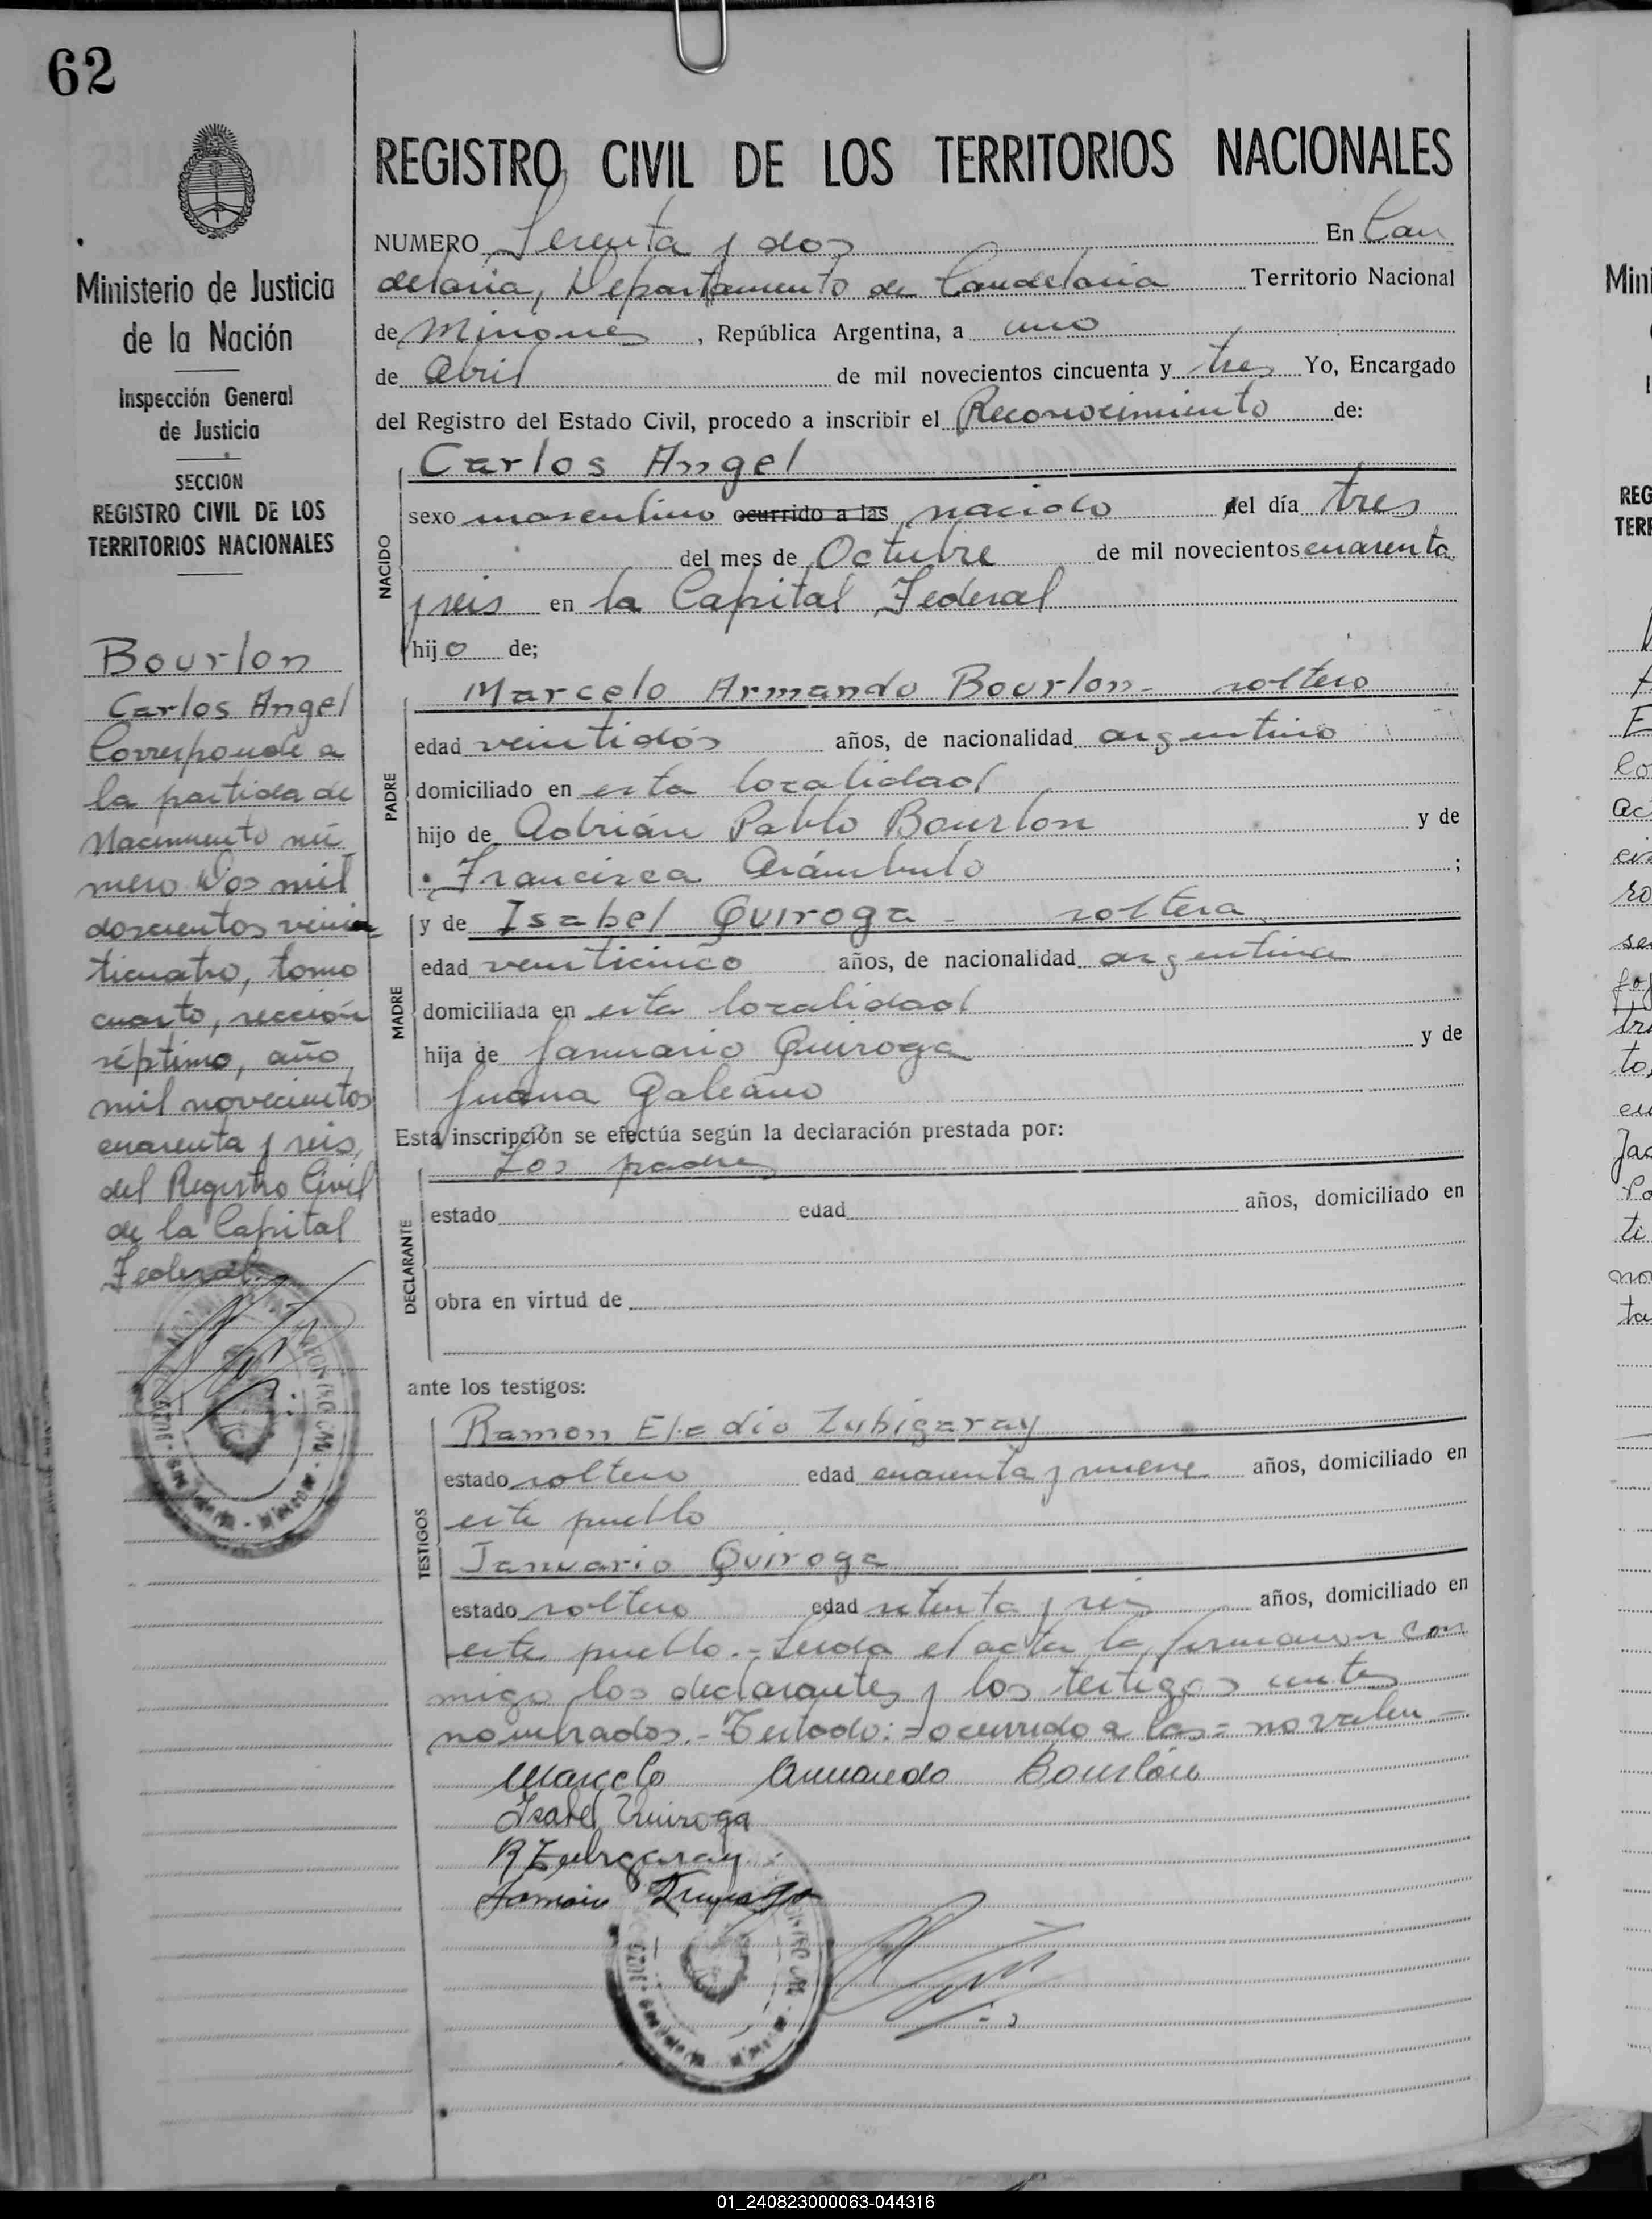 62
Ministerio de Justicia
de la Nación
Inspección General
de Justicia
SECCION
REGISTRO CIVIL DE LOS
TERRITORIOS NACIONALES
Bourlon
Carlos Angel
Corresponde a
la partida de
Nacimiento nú
mero Dos mil
doscientos vein
ticuatro, tomo
cuarto, sección
séptimo, año
mil novecientos
cuarenta y seis,
del Registro Civil
de la Capital
Federal.
REGISTRO CIVIL DE LOS TERRITORIOS NACIONALES
NUMERO Sesenta y dos En Can
delaria, Departamento de Candelaria Territorio Nacional
de Misiones, República Argentina, a uno
de Abril de mil novecientos cincuenta y tres Yo, Encargado
del Registro del Estado Civil, procedo a inscribir el Reconocimiento de:
Carlos Angel
NACIDO
sexo masculino ocurrido a las nacido del día tres
del mes de Octubre de mil novecientos cuarenta
y seis en la Capital Federal
hijo de;
Marcelo Armando Bourlon- soltero
PADRE
edad veintidós años, de nacionalidad argentino
domiciliado en esta localidad
hijo de Adrián Pablo Bourlon y de
Francisca Arámbulo ;
y de Isabel Quiroga - soltera
MADRE
edad veinticinco años, de nacionalidad argentina
domiciliada en esta localidad
hija de Januario Quiroga y de
Juana Galeano
Esta inscripción se efectúa según la declaración prestada por:
Los padres
DECLARANTE
estado edad años, domiciliado en
obra en virtud de
ante los testigos:
Ramon Eledio Zubigaray
TESTIGOS
estado soltero edad cuarenta y nueve años, domiciliado en
este pueblo
Januario Quiroga
estado soltero edad setenta y seis años, domiciliado en
este pueblo.- Leida el acta la firmaron con
migo los declarantes y los testigos antes
nombrados.- Testado:=ocurrido a las= no valen-
Marcelo Armando Bourlón
Isabel Quiroga
R Zubigaray
01_240823000063-044316